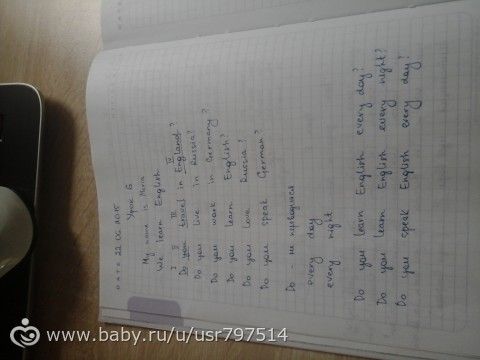 DATE 22 06 2015
Урок 6
My name is Maria
We learn English
I II III IV
Do you travel in England?
Do you live in Russia?
Do you work in Germany?
Do you learn English?
Do you love Russia?
Do you speak German?
Do - не переводится
every day
every night
Do you learn English every day?
Do you learn English every night?
Do you speak English every day?
www.baby.ru/u/usr797514